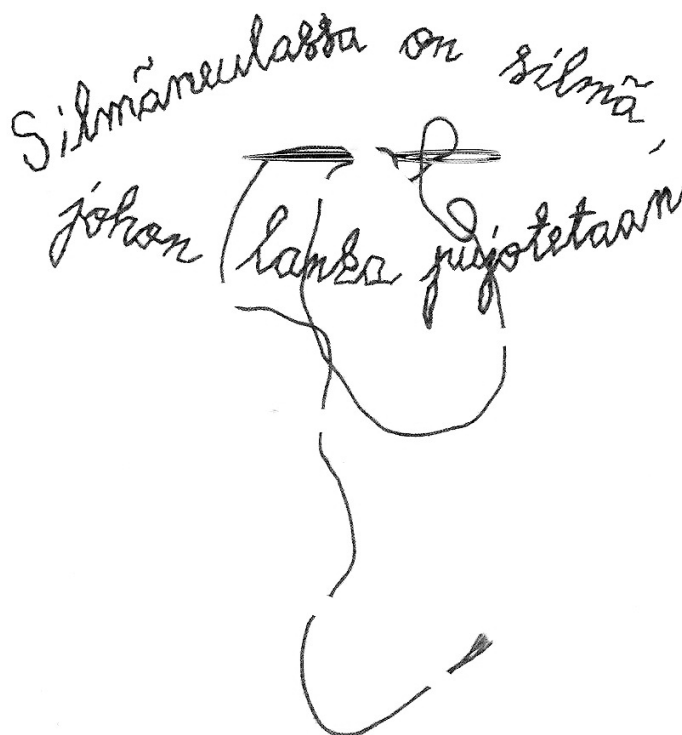 Silmäneulassa on silmä,
johon lanka pujotetaan